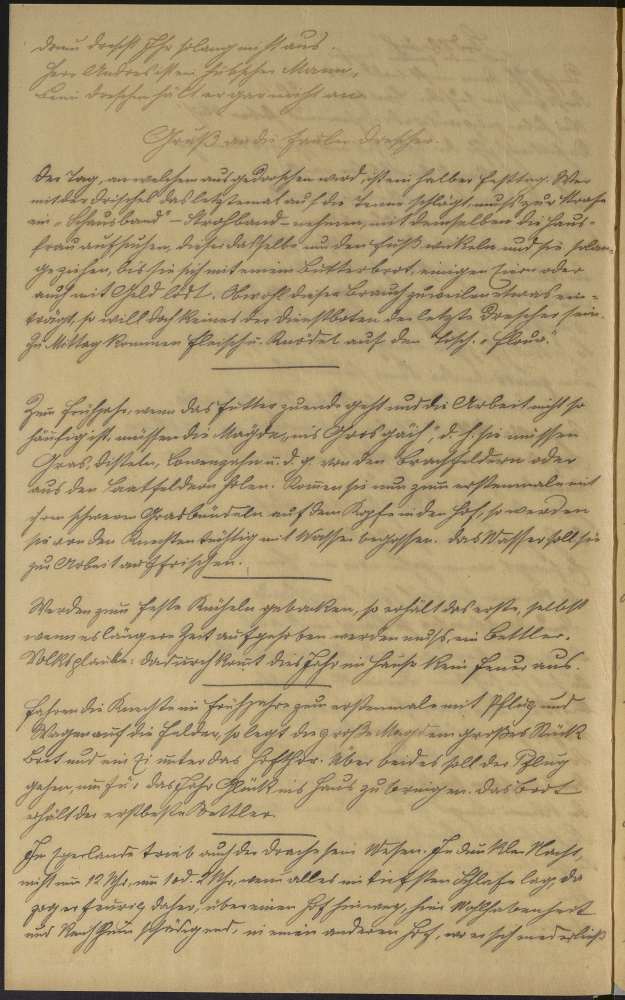 denn drescht Ihr solang nicht aus.
Herr Andres ist ein hübscher Mann,
beim Dreschen hält er gar nicht an
Gruß an die faulen Drescher.
Der Tag, an welchem ausgedroschen wird, ist ein halber Festtag. Wer
mit der Drischel das letztemal auf die Tenne schlägt, muß zur Strafe
ein „Schausband" – Strohband – nehmen, mit demselben die Haus-
frau aufsuchen, dieser dasselbe um den Fuß wickeln und sie solan-
ge ziehen, bis sie sich mit einem Butterbrot, einigen Eiern oder
auch mit Geld löst. Obwohl dieser Brauch zuweilen etwas ein-
trägt, so will doch keines der Dienstboten der letzte Drescher sein.
Zu Mittag kommen Fleisch u. Knödel auf den Tisch.
Im Frühjahr, wenn das Futter zuende geht und die Arbeit nicht so
häufig ist, müssen die Mägde „ins Gros gäih", d. h. sie müssen
Gras, Disteln, Löwenzahn u. d. g. von den Brachfeldern oder
aus den Saatfeldern holen. Kommen sie nun zum erstenmale mit
ihren schweren Grasbündeln auf dem Kopfe in den Hof, so werden
sie von den Knechten tüchtig mit Wasser begossen. Das Wasser soll sie
zur Arbeit auffrischen.
Werden zum Feste gebacken, so erhält das erste, selbst
wenn es längere Zeit aufgehoben werden muß, ein Bettler.
Volksglaube: dadurch kommt dies Jahr im Hause kein Feuer aus.
Fahren die Knechte im Frühjahre zum erstenmale mit Pflug und
Wagen auf die Felder, so legt die große Magd ein großes Stück
Brot und ein Ei unter das Hofthor. Über beides soll der Pflug
gehen, um für das Jahr Glück ins Haus zu bringen. Das Brot
erhält der erstbeste Bettler.
Im Egerlande trieb auch der Drache sein Wesen. In dunkler Nacht,
nicht um 12 Uhr, um 1 od. 2 Uhr, wenn alles im tiefsten Schlafe lag, da
zog er feurig daher, über einen Hof hinweg, sein Wohlhabenheit
und Reichthum schädigend, in einen anderen Hof, wo er sich niederließ